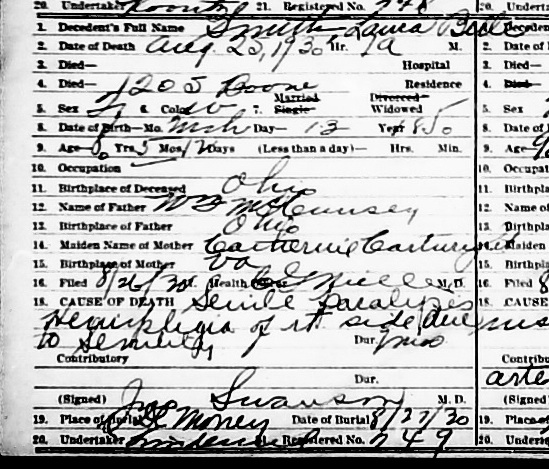 20. Undertaker Koontz 21. Registered No. 748 20. Undert
1. Decedent's Full Name Smith Laura Belle 1. Decede
2. Date of Death Aug 25, 1930 Hr. 9a M. 2. Date of
3. Died— Hospital 3. Died—
4. Died— 1205 Boone Residence 4. Died—
Married Divorced
5. Sex F 6. Color W 7. Single Widowed 5. Sex
8. Date of Birth—Mo. Mch Day— 13 Year 1850 8. Date of
9. Age 80 Yrs. 5 Mos. 12 Days (Less than a day)— Hrs. Min. 9. Age
10. Occupation 10. Occupat
11. Birthplace of Deceased Ohio 11. Birthpla
12. Name of Father Wm 12. Name of
13. Birthplace of Father Ohio 13. Birthpl
14. Maiden Name of Mother Catherine 14. Maiden
15. Birthplace of Mother Va 15. Birthpl
16. Filed 8/26/30 Health Miller M.D. 16. Filed 8
18. CAUSE OF DEATH Senile paralysis 18. CAUSE
Hemiplegia of rt side due
to Senility Dur. 7 mos
Contributory Contribu
Dur. arte
(Signed) Jno Swanson M. D. (Signed)
19. Place of Burial Money Date of Burial 8/27/30 19. Place
20. Undertaker 21. Registered No. 749 20. Undert